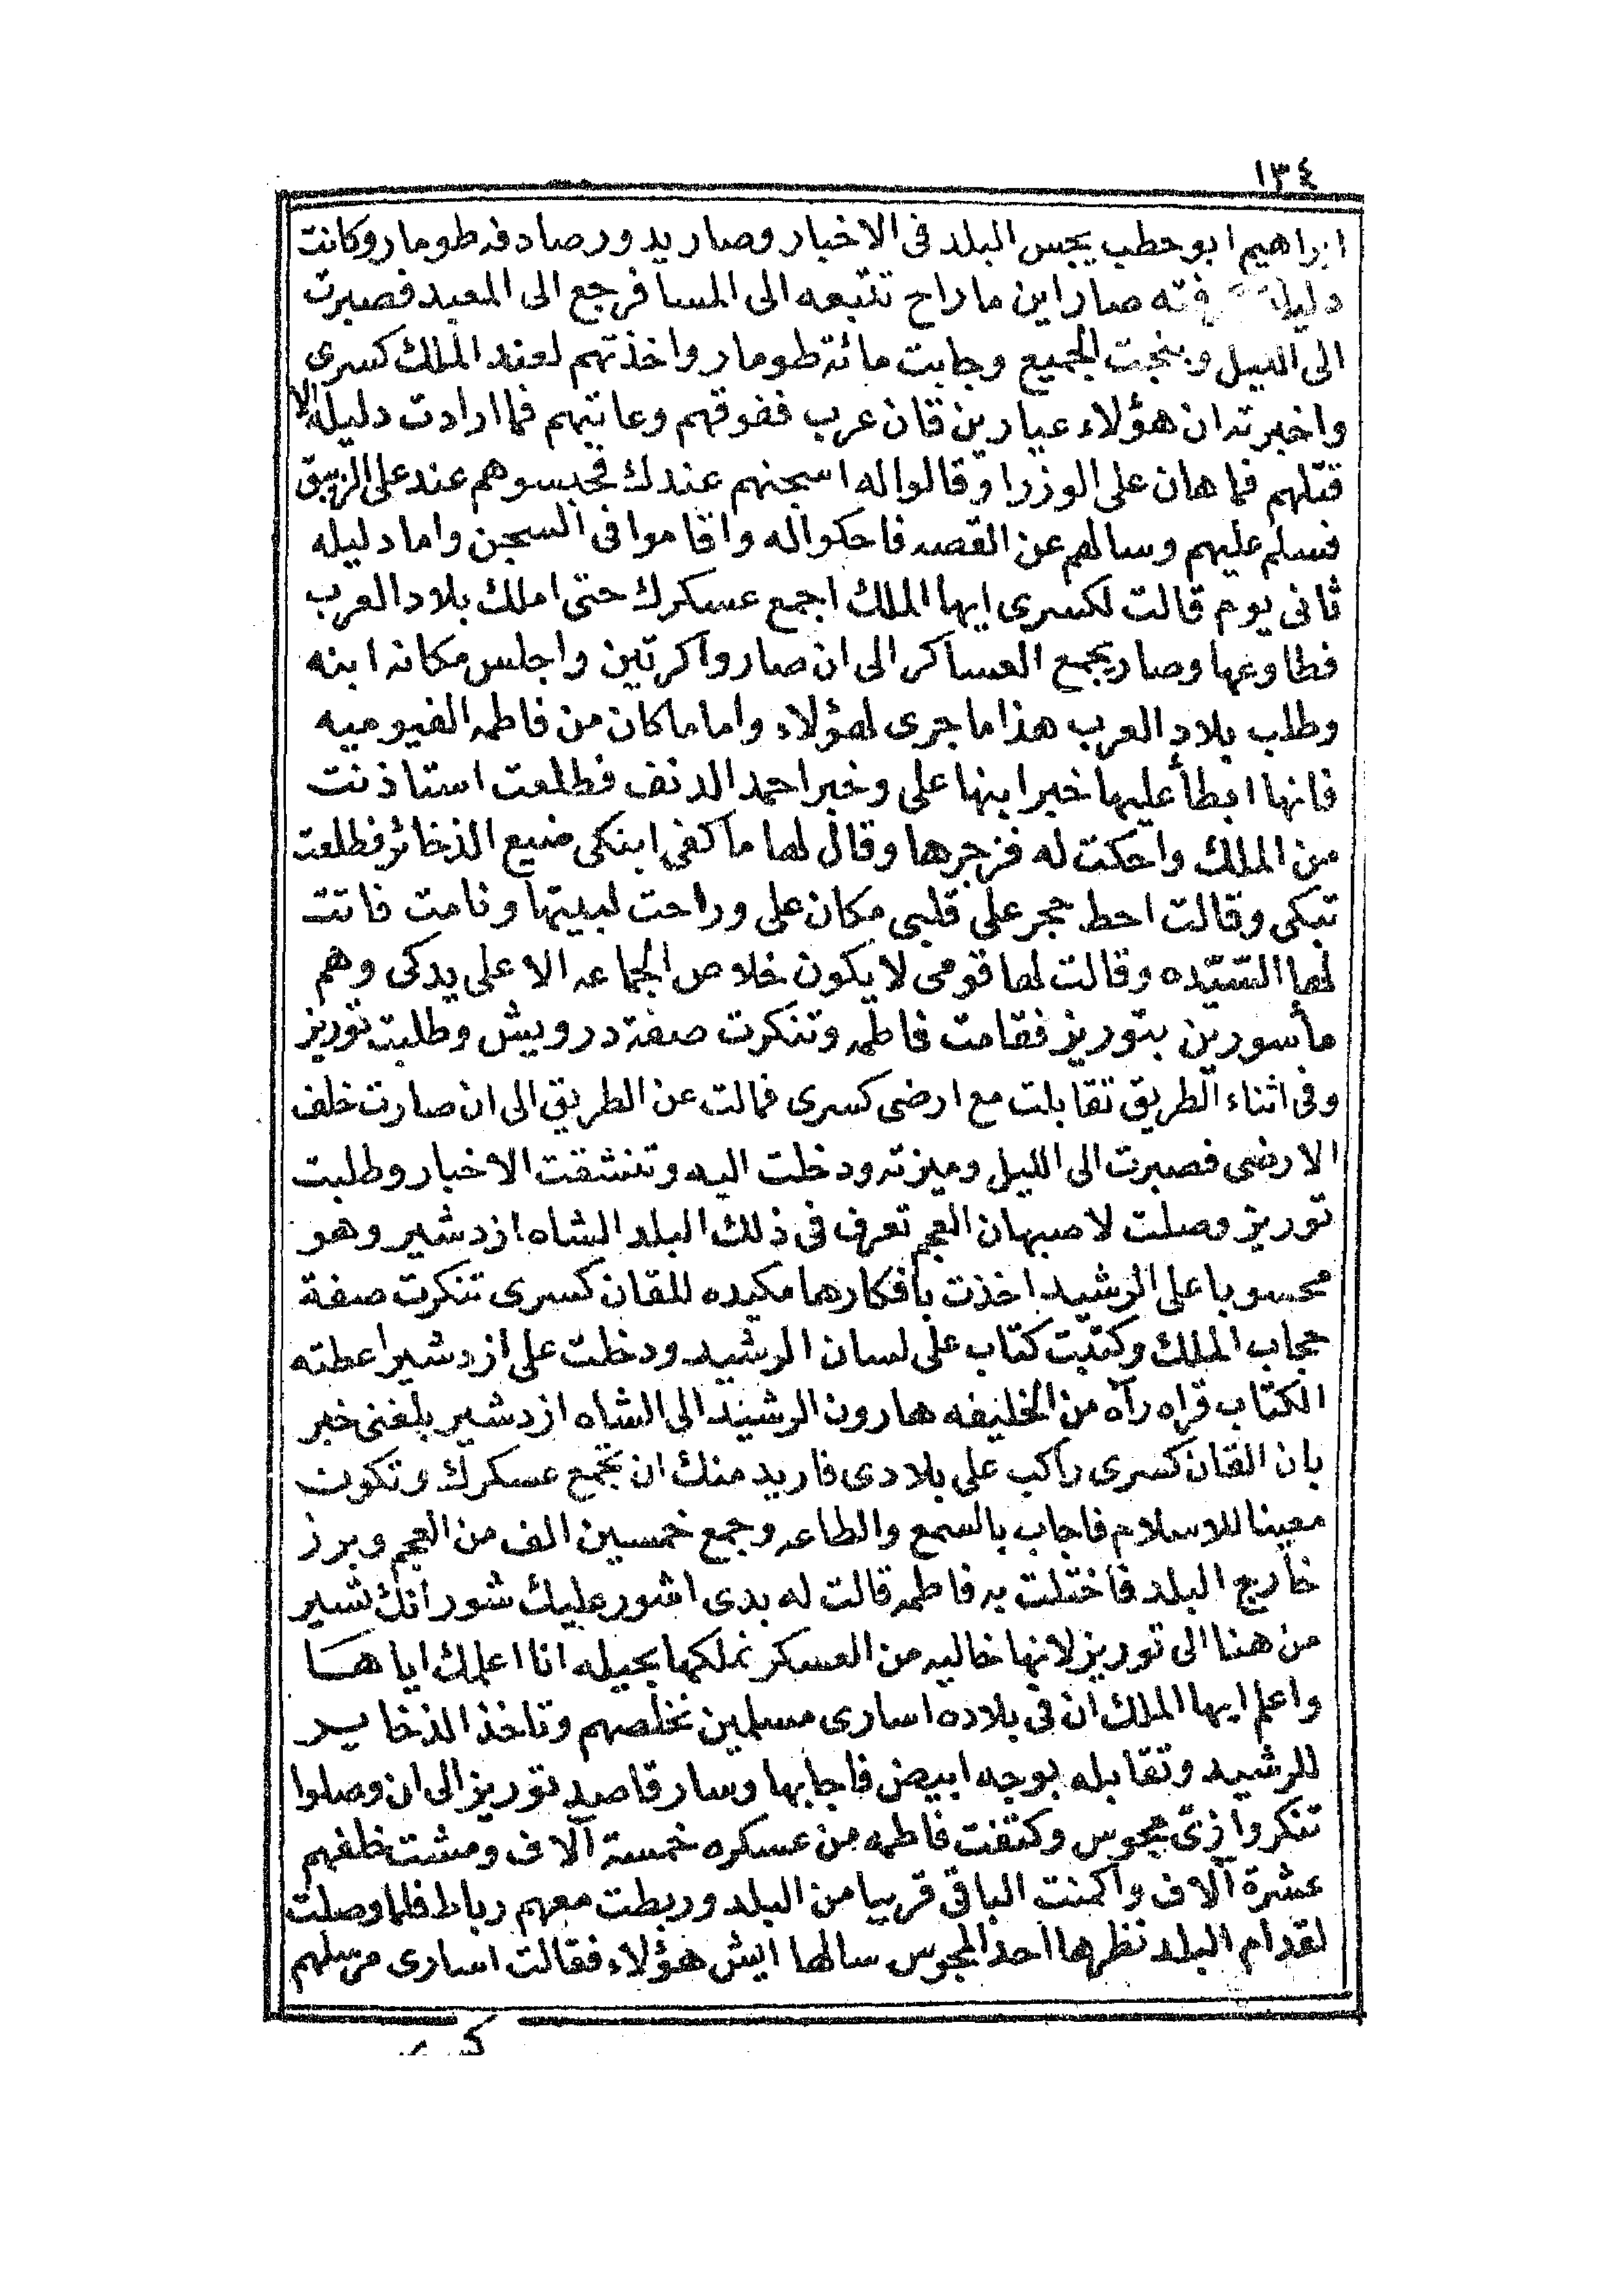 ١٣٤
ابراهيم ابو حطب يجس البلد فى الاخبار وصار يدور صادفه طومار وكانت
دليله فته صار اين ما راح تتبعه الى المسا فرجع الى المعبد فصبرت
الى الليل وبنجت الجميع وجابت مائة طومار واخذتهم لعند الملك كسرى
واخبرته ان هؤلاء عيارين قان عرب ففوقهم وعاتبهم فما ارادت دليله الا
قتلهم فما هان على الوزرا وقالوا له اسجنهم عندك فحبسوهم عند على الزيبق
فسلم عليهم وسالهم عن القصه فاحكوا له واقاموا فى السجن واما دليله
ثانى يوم قالت لكسرى ايها الملك اجمع عسكرك حتى املك بلاد العرب
فطاوعها وصار يجمع العساكر الى ان صاروا كرتين واجلس مكانه ابنه
وطلب بلاد العرب هذا ما جرى لهؤلاء واما ما كان من فاطمه الفيوميه
فانها ابطأ عليها خبر ابنها على وخبر احمد الدنف فطلعت استاذنت
من الملك واحكت له فزجرها وقال لها ما كفى ابنكى ضيع الذخائر فطلعت
تبكى وقالت احط حجر على قلبى مكان على وراحت لبيتها ونامت فاتت
لها السيّده وقالت لها قومى لا يكون خلاص الجماعه الا على يدكى وهم
مأسورين بتوريز فقامت فاطمه وتنكرت صفة درويش وطلبت توريز
وفى اثناء الطريق تقابلت مع ارضى كسرى فمالت عن الطريق الى ان صارت خلف
الارضى فصبرت الى الليل وميزته ودخلت اليه وتنشقت الاخبار وطلبت
توريز وصلت لاصبهان العجم تعرف فى ذلك البلد الشاه ازدشير وهو
محسوبا على الرشيد اخذت بافكارها مكيده للقان كسرى تنكرت صفة
حجاب الملك وكتبت كتاب على لسان الرشيد ودخلت على ازدشير اعطته
الكتاب قراه رآه من الخليفه هارون الرشيد الى الشاه ازدشير بلغنى خبر
بان القان كسرى راكب على بلادى فاريد منك ان تجمع عسكرك وتكون
معينا للاسلام فاجاب بالسمع والطاعه وجمع خمسين الف من العجم وبرز
خارج البلد فاختلت به فاطمه قالت له بدى اشور عليك شور انك تسير
من هنا الى توريز لانها خاليه من العسكر نملكها بحيله انا اعلمك اياها
واعلم ايها الملك ان فى بلاده اسارى مسلمين نخلصهم وتاخذ الذخاير
للرشيد وتقابله بوجه ابيض فاجابها وسار قاصد توريز الى ان وصلوا
تنكروا زى مجوس وكتفت فاطمه من عسكره خمسة آلاف ومشت خلفهم
عشرة آلاف واكمنت الباقى قريبا من البلد وربطت معهم رباط فلما وصلت
لقدام البلد نظرها احد المجوس سالها ايش هؤلاء فقالت اسارى مرسلهم